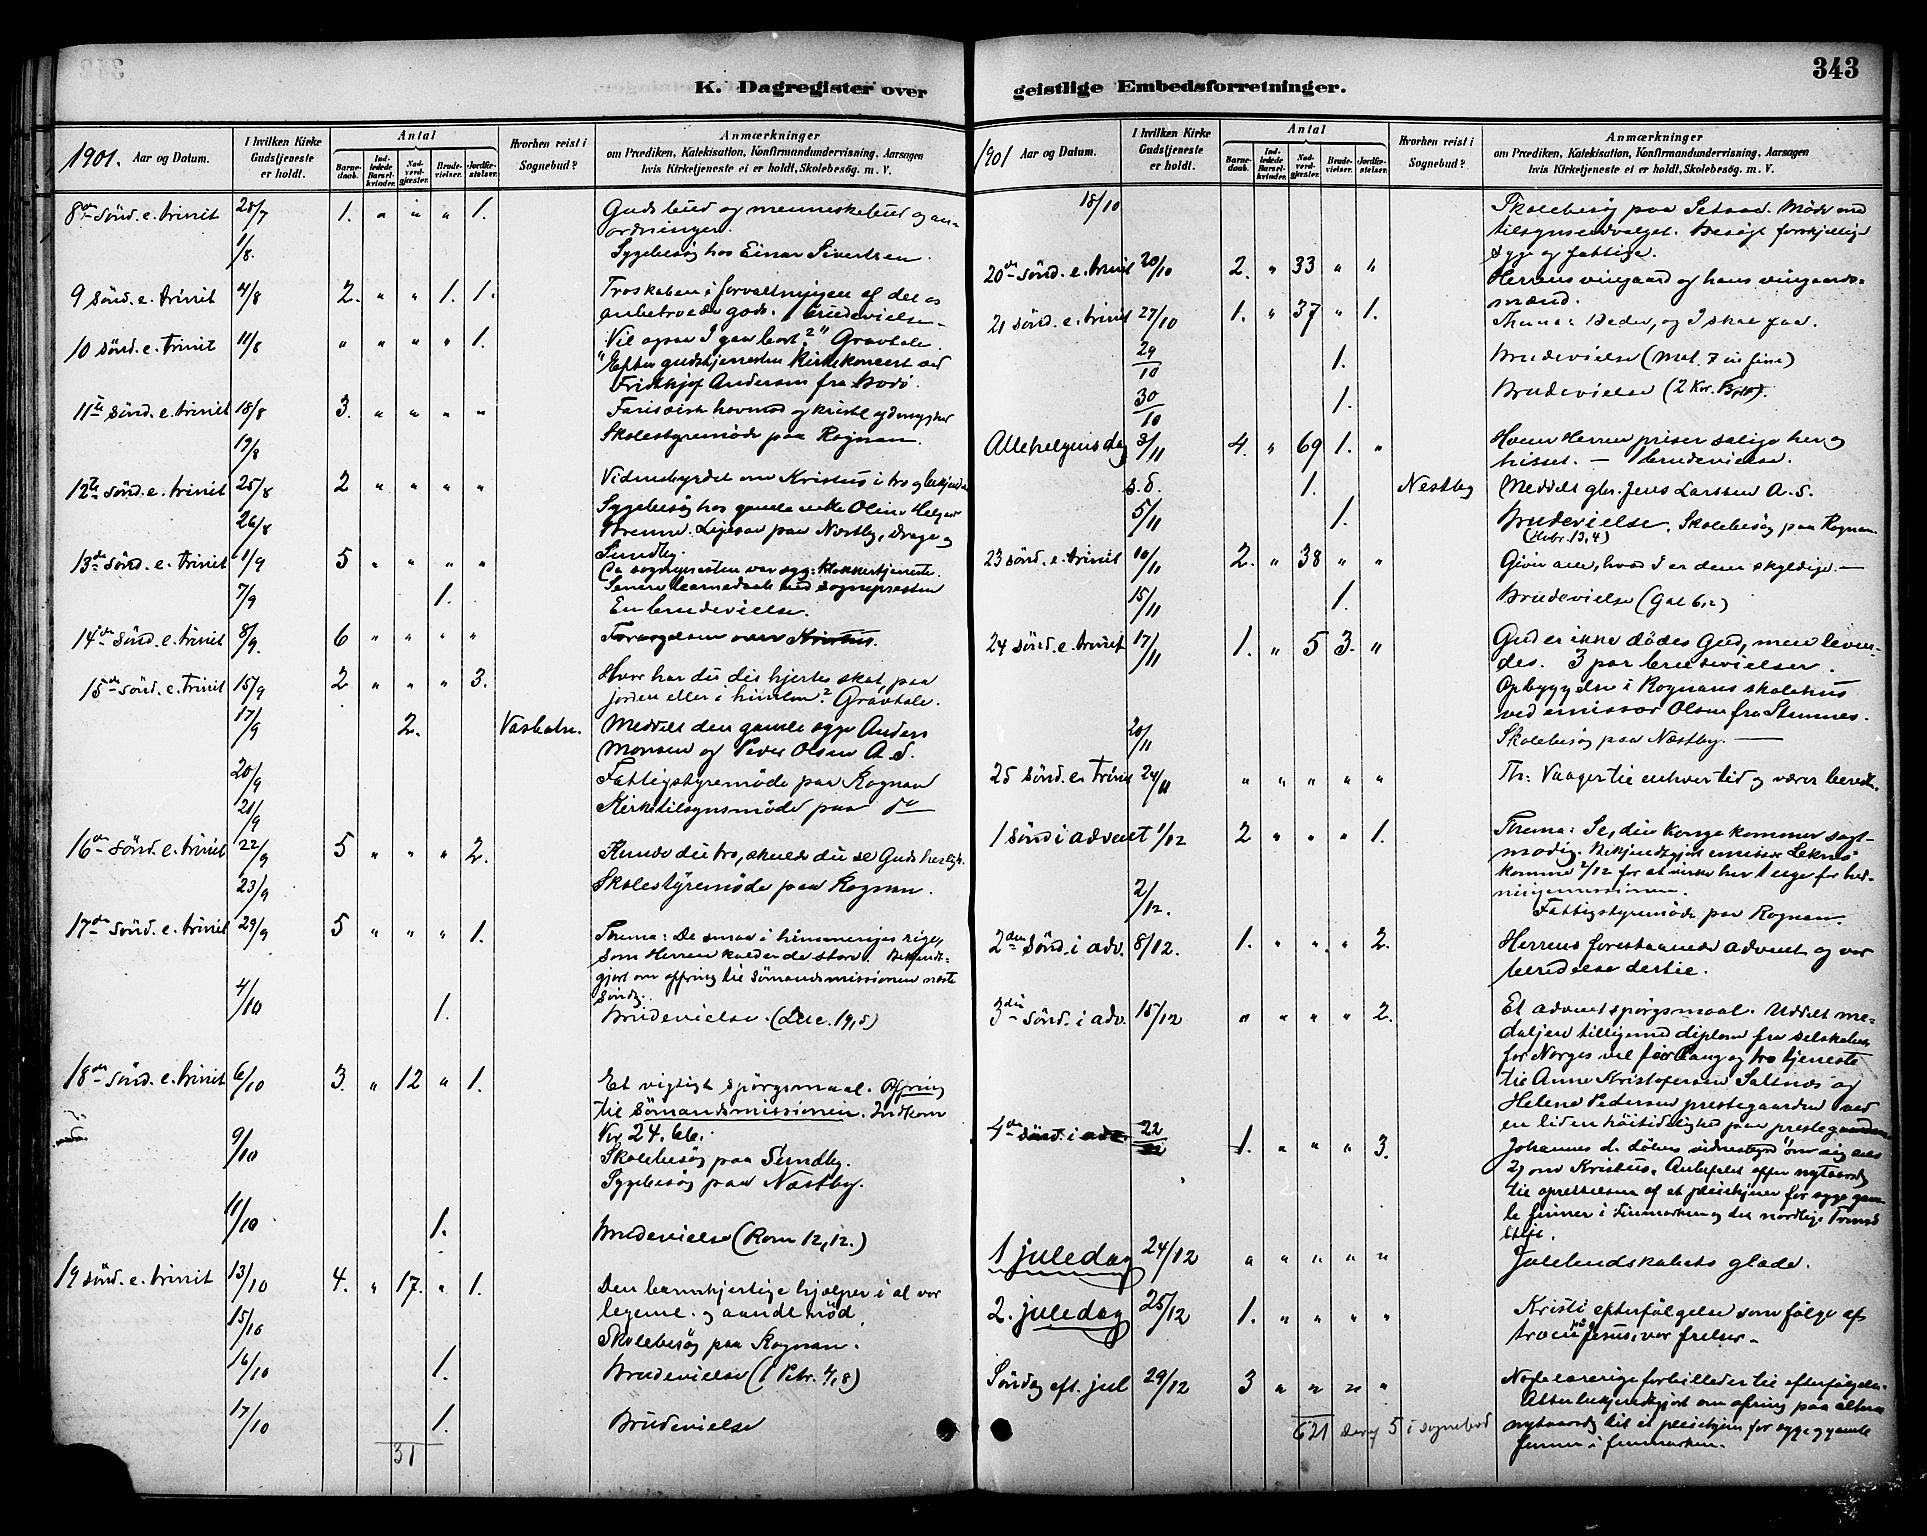 343
K. Dagregister over
1901. Aar og Datum.
I hvilken Kirke Gudstjeneste er holdt.
Antal
Barnedaab. Indledede Barselkvinder. Nadverdgjester. Brudevielser. Jordfæstelser.
Hvorhen reist i Sognebud?
Anmærkninger
om Prædiken, Katekisation, Konfirmandundervisning, Aarsagen
hvis Kirketjeneste ei er holdt, Skolebesøg. m. V.
8de sönd. e. trinit 28/7 1. " " " 1. Guds bud og menneskebud og an-
ordninger.
1/8. Sygebesög hos Einar Sivertsen.
9 sönd. e. trinit 4/8 2. " " 1. 1. Troskaben i forvaltningen af det os
anbetroede gods. 1 brudevielse
10 sönd. e. trinit 11/8 " " " " 1. Vil ogsaa I gaa bort?" Gravtale.
"Efter gudstjenesten kirkekoncert ved
Fridthjof Andersen fra Bodö.
11te sönd. e. trinit 18/8 3. " " " " Farisæisk hovmod og kristel ydmyghet
19/8 Skolestyremöde paa Rognan.
12te sönd. e. trinit 25/8 2 " " " " Vidnesbyrdet om Kristus i tro og
26/8 Sygebesög hos gamle enke Oline
Ligesaa paa Næstby, Drage og
Sundby.
13de sönd. e. trinit 1/9 5 " " " " Da sognepresten var syg: klokkertjeneste.
Senere barnedaab ved sognepresten
7/9 1. En brudevielse.
14de sönd. e. trinit 8/9. 6 " " " " Forargelsen over Kristus.
15de sönd. e. trinit 15/9 2 " " " 3. Hvor har du dit hjertes skat, paa
jorden eller i himlen? Gravtale.
17/9 2. Meddelt den gamle syge Anders
Monsen og Peder Olsen A. S.
20/9 Fattigstyremöde paa Rognan
21/9 Kirketilsynsmöde paa do
16de sönd. e. trinit 22/9 5 " " " 2. Kunde du tro, skulde du se Guds
23/9 Skolestyremöde paa Rognan.
17de sönd. e. trinit 29/9 5 " " " 1. Thema: De smaa i himmeriges rige,
som Herren kalder de store.
gjort om ofring til sömandsmissionen næste
sönd.
4/10 1. Brudevielse. (Luc. 19,5)
18de sönd. e. trinit 6/10 3. " 12 " 1. Et vigtigt spörgsmaal. Ofring
til sömandsmissionen. Indkom
Kr. 24.66.
9/10 Skolebesög paa Sundby.
Sygebesög paa Næstby.
11/10 1. Brudevielse (Rom 12,12.)
19 sönd. e. trinit 13/10 4. " 17. " 1. Den barmhjertige hjælper i al vor
legeme- og aandenöd.
15/10 Skolebesög paa Rognan.
16/10 1. Brudevielse (1 Petr. 4,8)
17/10 1. Brudevielse
31
geistlige Embedsforretninger.
1901 Aar og Datum.
I hvilken Kirke Gudstjeneste er holdt.
Antal
Barnedaab. Indledede Barselkvinder. Nadverdgjester. Brudevielser. Jordfæstelser.
Hvorhen reist i Sognebud?
Anmærkninger
om Prædiken, Katekisation, Konfirmandundervisning, Aarsagen
hvis Kirketjeneste ei er holdt, Skolebesøg. m. V.
18/10 Skolebesög paa Setsaa. Möde med
tilsynsudvalget. Besögt forskjellige
syge og fattige.
20de sönd. e. trinit 20/10 2. " 33 " " Herrens vingaard og hans vingaards-
mænd.
21 sönd. e. trinit 27/10 1. " 37 " 1. Thema: Beder, og I skal faa.
29/10 1. Brudevielse (Mat. 7 in fine)
30/10 1. Brudevielse (2 Kor.
Allehelgensdag 3/11 4. " 69 1. " Hvem Herren priser salige her og
hisset. — 1 brudevielse.
s. d. 1. Nestby Meddelt gbr. Jens Larssen A. S.
5/11 1. Brudevielse. Skolebesög paa Rognan
(Hebr. 13,4)
23 sönd. e. trinit 10/11 2. " 38 " " Giver alle, hvad I er dem skyldige. —
15/11 1. Brudevielse (Gal 6,2)
24 sönd. e. trinit 17/11 1. " 5 3. " Gud er ikke dödes Gud, men leven-
des. 3 par brudevielser.
Opbyggelse i Rognans skolehus
ved emissær Olsen fra Stemnes.
20/11 Skolebesög paa Næstby. —
25 sönd. e. trinit 24/11 " " " " " Th: Vaager til enhver tid og værer beredt.
1 sönd i advent 1/12 2 " " " 1. Thema: Se, din konge kommer sagt-
modig. Bekjendtgjort emissær Leknes
komme 2/12 for at virke her 1 uge for hed-
ningemissionen.
2/12. Fattigstyremöde paa Rognan.
2den sönd. i adv. 8/12. 1. " " " 2. Herrens forestaaende advent og vor
beredelse dertil.
3die sönd. i adv. 15/12 " " " " 2. Et adventspörgsmaal. Uddelt me-
daljen tilligemed diplom fra selskabet
for Norges vel for lang og tro tjeneste
til Anne Kristofersen Saltnes og
Helene Pedersen prestegaarden ved
en liden höitidelighed paa prestegaarden.
4de sönd. i adv. 22/12 1. " " " 3. Johannes d. döbers vidnesbyrd 1) om sig selv
2) om Kristus. Anbefalet offer nytaarsdag
til oprettelsen af et pleiehjem for syge gam-
le finner i Finmarken og det nordlige Tromsö
stift.
1 juledag 24/12 " " " " " Julebudskabets glæde.
2. juledag 25/12 1. " " " " Kristi efterfölgelse som fölge af
troen paa Jesus, vor frelser.
Söndag eft. jul 29/12 3 " " " " Nogle lærerige forbilleder til efterfölgelse.
Atter bekjendtgjort om ofring paa
nytaarsdag til et pleiehjem for syge gamle
finner i finmarken.
621 deraf 5 i sognebud